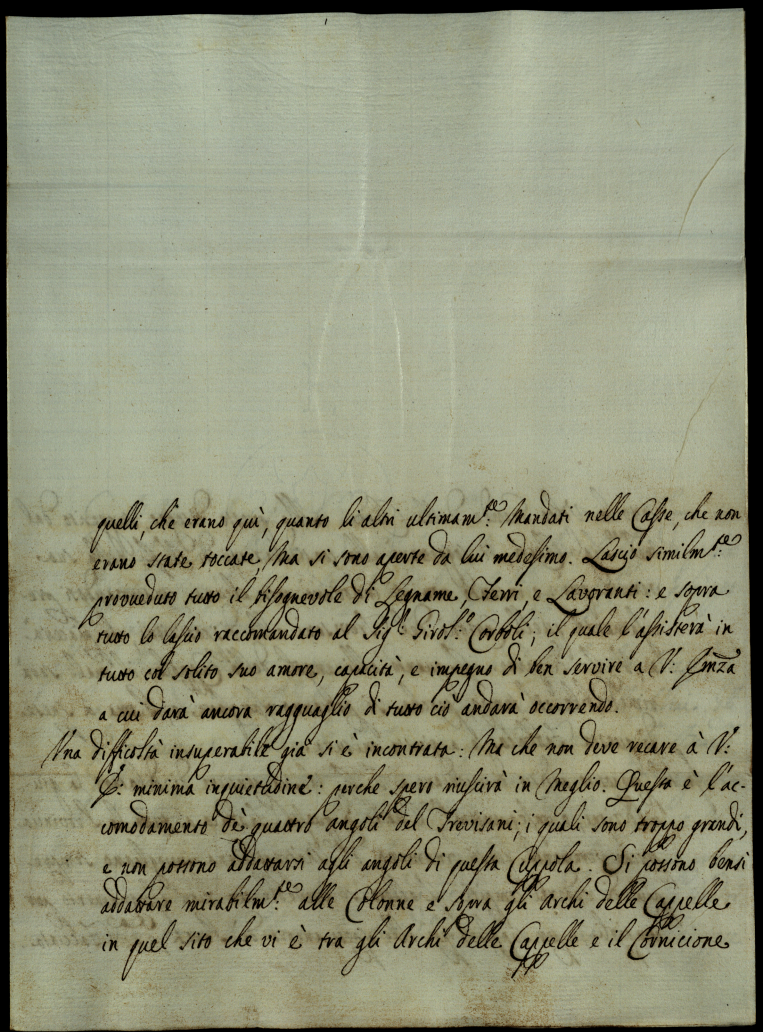 quelli, che erano quì, quanto li altri ultimam.te Mandati nelle Casse, che non
erano state toccate, Ma si sono aperte da lui medesimo. Lascio similm.te
proveduto tutto il bisognevole di Legname, Ferri, e Lavoranti: e sopra
tutto lo lascio raccomandato al Sig.r Girol.o Corboli, il quale l'assisterà in
tutto col solito suo amore, capacità, e impegno di ben servire a V: Emza
a cui darà ancora ragguaglio di tutto ciò andarà occorrendo.
Una difficoltà insuperabile già si è incontrata: Ma che non deve recare à V:
E: minima inquietudine: perche spero riuscirà in Meglio. Questa è l'ac-
comodamento dè quattro angoli del Trevisani, i quali sono troppo grandi,
e non possono addattarsi agli angoli di questa Cuppola. Si possono bensi
addattare mirabilm.te alle Colonne e sopra gli Archi delle Cappelle
in quel sito che vi è tra gli Archi delle Cappelle e il Cornicione